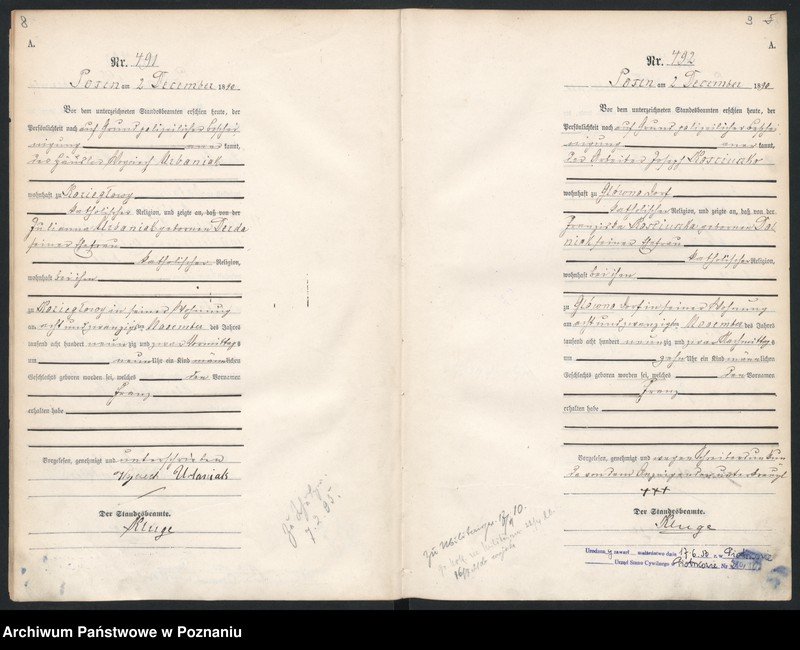 8
A.
Nr. 491
Posen am 2 December 1890
Vor dem unterzeichneten Standesbeamten erschien heute, der
Persönlichkeit nach auf Grund polizeilicher Beschei
nigung anerkannt,
der Häusler Woyciech Urbaniak
wohnhaft zu Koziegłowy
katholischer Religion, und zeigte an, daß von der
Julianna Urbaniak gebornen
seiner Ehefrau
katholischer Religion,
wohnhaft bei ihm
zu Koziegłowy in seiner Wohnung
am acht und zwanzigsten November des Jahres
tausend acht hundert neunzig und zwar Vormittags
um neun Uhr ein Kind männlichen
Geschlechts geboren worden sei, welches den Vornamen
Franz
erhalten habe
Vorgelesen, genehmigt und unterschrieben
Urbaniak
Der Standesbeamte.
Kluge
9 5
A.
Nr. 492
Posen am 2 December 1890
Vor dem unterzeichneten Standesbeamten erschien heute, der
Persönlichkeit nach auf Grund polizeilicher Beschei
nigung anerkannt,
der Arbeiter Joseph Kosciuszko
wohnhaft zu Główno Dorf
katholischer Religion, und zeigte an, daß von der
Franziska Kosciuszko gebornen
seiner Ehefrau
katholischer Religion,
wohnhaft bei ihm
zu Główno Dorf in seiner Wohnung
am acht und zwanzigsten November des Jahres
tausend acht hundert neunzig und zwar Nachmittags
um zehn Uhr ein Kind männlichen
Geschlechts geboren worden sei, welches den Vornamen
Franz
erhalten habe
Vorgelesen, genehmigt und wegen Schreibensunkun
de von dem Anzeigenden unterkreuzt
+++
Der Standesbeamte.
Kluge
zawarł małżeństwo dnia 17.6.50
Urząd Stanu Cywilnego Nr
Archiwum Państwowe w Poznaniu